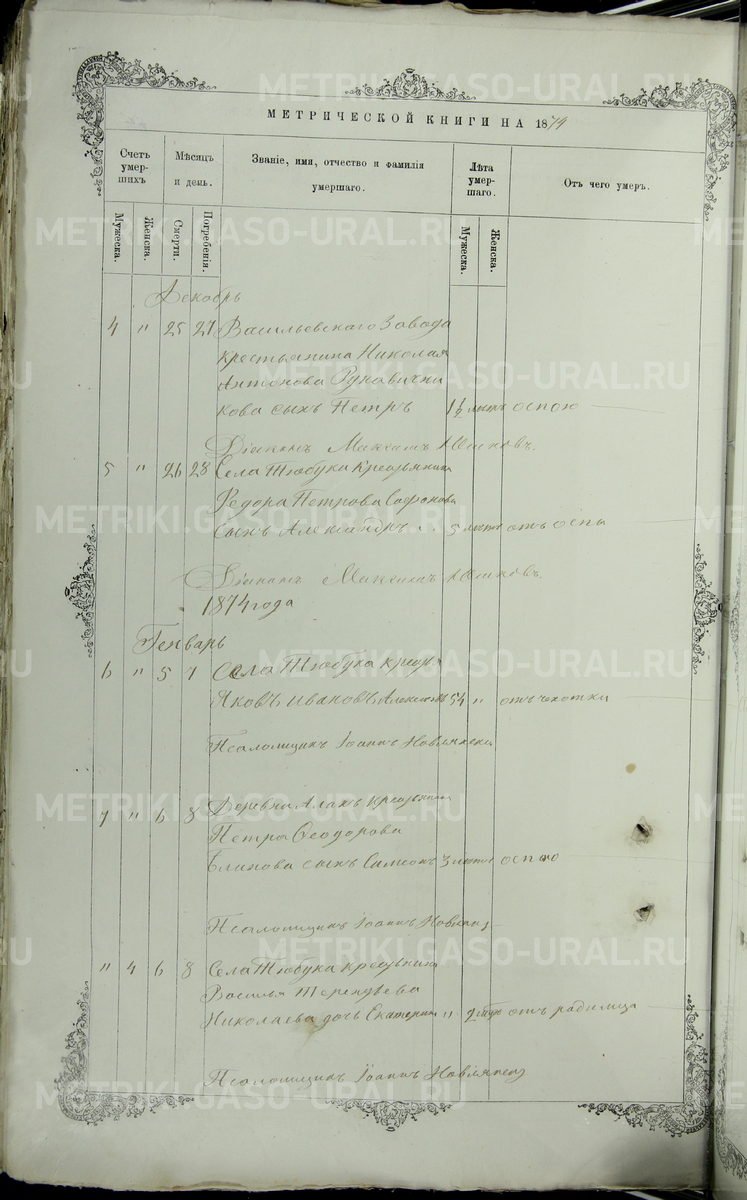 METRIKI.GASO-URAL.RU
МЕТРИЧЕСКОЙ КНИГИ НА 1874
Счетъ умер- шихъ
Мѣсяцъ и день.
Званіе, имя, отчество и фамилія умершаго.
Лѣта умер- шаго.
Отъ чего умеръ.
Мужеска. Женска. Смерти. Погребенія. Мужеска. Женска.
Декабрь
4 " 25 27 Васильевскаго Завода
крестьянина Николая
Антонова Рукавични
кова сынъ Петръ 1½ лѣтъ оспою
Діаконъ Максимъ
5 " 26 28 Села Тюбука крестьянина
Ѳедора Петрова Сафонова
сынъ Александръ 5 лѣтъ отъ оспы
Діаконъ Максимъ
1874 года
Генварь
6 " 5 7 Села Тюбука крест
Яковъ Ивановъ 54 " отъ чахотки
Псаломщикъ Іоаннъ
7 " 6 8 Деревни крестьянина
Петра Ѳеодорова
Блинова сынъ Симеонъ 3 лѣтъ оспою
Псаломщикъ Іоаннъ
" 4 6 8 Села Тюбука крестьянина
Василья Терентьева
Николаева дочь Екатерина " 2 отъ родимца
Псаломщикъ Іоаннъ